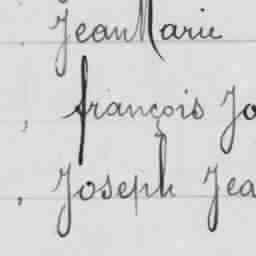 Jean Marie
, françois Jo
, Joseph Jea